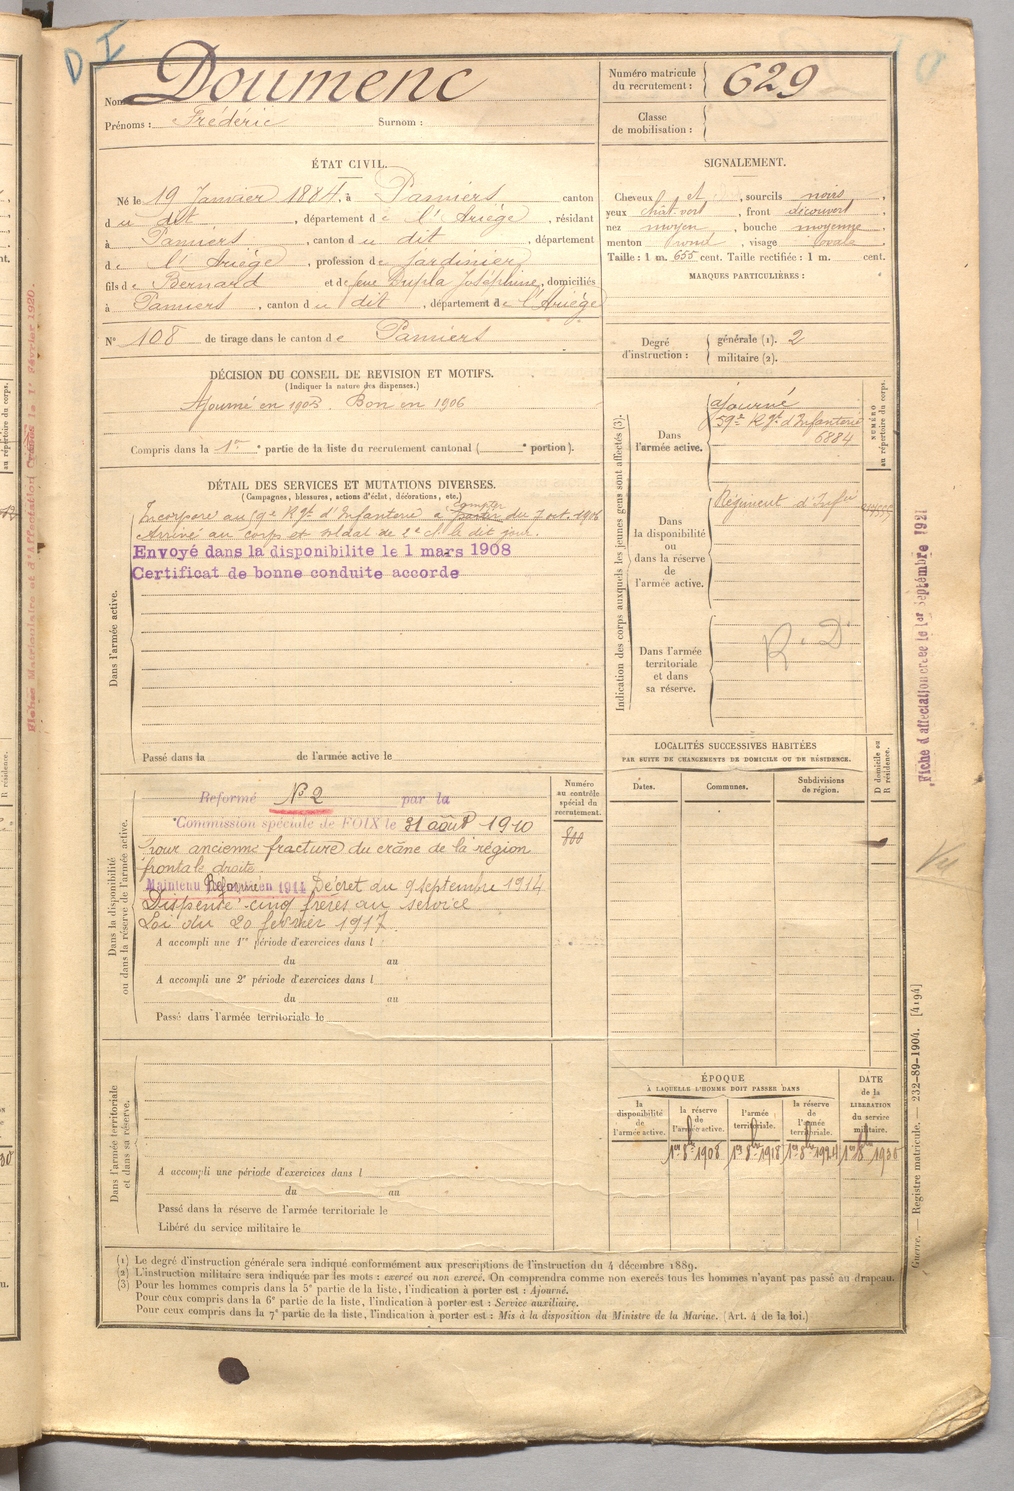 D I
Nom Doumenc
Prénoms : Frédéric Surnom :
Numéro matricule du recrutement : 629
Classe de mobilisation :
ÉTAT CIVIL.
Né le 19 Janvier 1884, à Pamiers canton
du dit, département de l'Ariège, résidant
à Pamiers, canton du dit, département
de l'Ariège, profession de Jardinier
fils de Bernard et de feue Dupla Joséphine, domiciliés
à Pamiers, canton du dit, département de l'Ariège
N° 108 de tirage dans le canton de Pamiers
SIGNALEMENT.
Cheveux et, sourcils noirs,
yeux chât. vert, front découvert,
nez moyen, bouche moyenne,
menton rond, visage ovale
Taille : 1 m. 655 cent. Taille rectifiée : 1 m. cent.
MARQUES PARTICULIÈRES :
Degré d'instruction : générale (1). 2
militaire (2).
DÉCISION DU CONSEIL DE REVISION ET MOTIFS.
(Indiquer la nature des dispenses.)
Ajourné en 1905. Bon en 1906
Compris dans la 1re partie de la liste du recrutement cantonal ( e portion).
DÉTAIL DES SERVICES ET MUTATIONS DIVERSES.
(Campagnes, blessures, actions d'éclat, décorations, etc.)
Dans l'armée active.
Incorporé au 59e Rgt d'Infanterie à compter du 7 oct. 1906
Arrivé au corps et soldat de 2e cl. le dit jour.
Envoyé dans la disponibilite le 1 mars 1908
Certificat de bonne conduite accorde
Passé dans la de l'armée active le
Indication des corps auxquels les jeunes gens sont affectés (3).
NUMÉRO au répertoire du corps.
Dans l'armée active.
ajourné
59e Rgt d'Infanterie
6884
Dans la disponibilité ou dans la réserve de l'armée active.
Régiment d'Infie
Dans l'armée territoriale et dans sa réserve.
R. D
LOCALITÉS SUCCESSIVES HABITÉES
PAR SUITE DE CHANGEMENTS DE DOMICILE OU DE RÉSIDENCE.
Dates. Communes. Subdivisions de région. D domicile ou R résidence.
Dans la disponibilité ou dans la réserve de l'armée active.
Numéro au contrôle spécial du recrutement.
800
Reformé N° 2 par la
Commission spéciale de FOIX le 31 août 1910
Pour ancienne fracture du crâne de la région
frontale droite.
Maintenu Réformé en 1914 Décret du 9 septembre 1914
Dispensé cinq frères au service
Loi du 20 février 1917.
A accompli une 1re période d'exercices dans l
du au
A accompli une 2e période d'exercices dans l
du au
Passé dans l'armée territoriale le
Dans l'armée territoriale et dans sa réserve.
A accompli une période d'exercices dans l
du au
Passé dans la réserve de l'armée territoriale le
Libéré du service militaire le
ÉPOQUE
À LAQUELLE L'HOMME DOIT PASSER DANS
la disponibilité de l'armée active. la réserve de l'armée active. l'armée territoriale. la réserve de l'armée territoriale. DATE de la LIBÉRATION du service militaire.
1er 8bre 1908 1er 8bre 1918 1er 8bre 1924 1er 8bre 1930
(1) Le degré d'instruction générale sera indiqué conformément aux prescriptions de l'instruction du 4 décembre 1889.
(2) L'instruction militaire sera indiquée par les mots : exercé ou non exercé. On comprendra comme non exercés tous les hommes n'ayant pas passé au drapeau.
(3) Pour les hommes compris dans la 5e partie de la liste, l'indication à porter est : Ajourné.
Pour ceux compris dans la 6e partie de la liste, l'indication à porter est : Service auxiliaire.
Pour ceux compris dans la 7e partie de la liste, l'indication à porter est : Mis à la disposition du Ministre de la Marine. (Art. 4 de la loi.)
Fiche d'affectation créée le 1er Septembre 1921
Vu
Guerre. — Registre matricule. — 232-89-1904. [4194]
Fiches Matriculaire et d'Affectation Créées le 1er Février 1920.